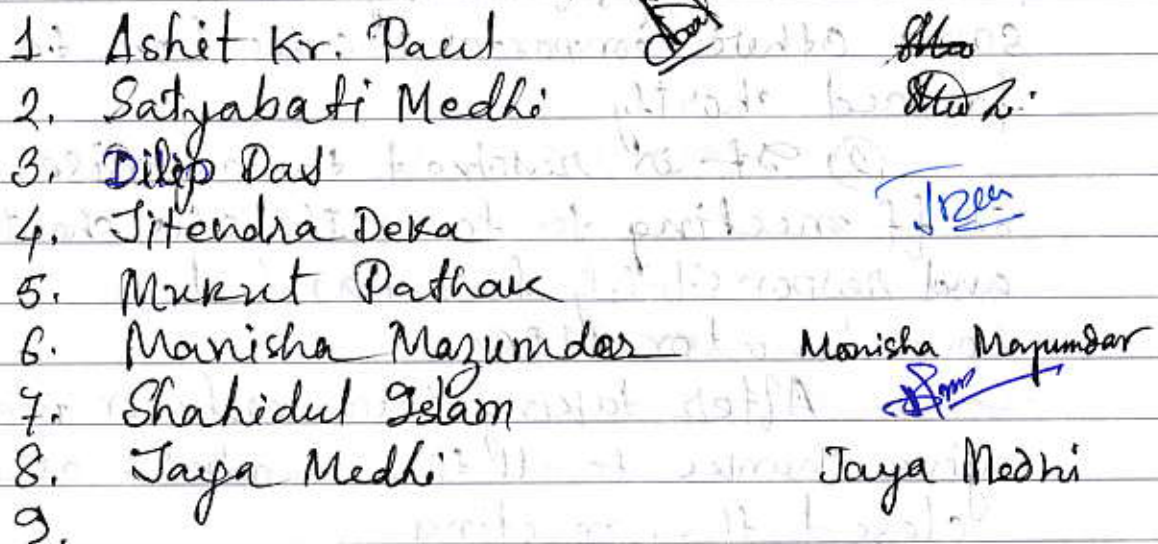 1. Ashit Kr. Paul
2. Satyabati Medhi
3. Dilip Das
4. Jitendra Deka
5. Mukut Pathak
6. Manisha Mazumdar Manisha Mazumdar
7. Shahidul Islam
8. Jaya Medhi Jaya Medhi
9.